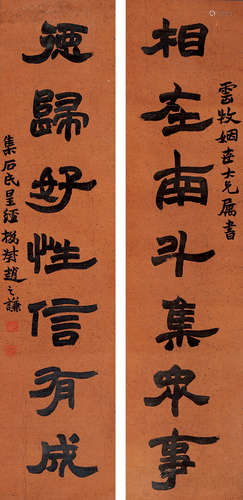 雲牧姻世大兄屬書
相在南斗集眾事
德歸好性信有成
集石氏星經 撝叔趙之謙